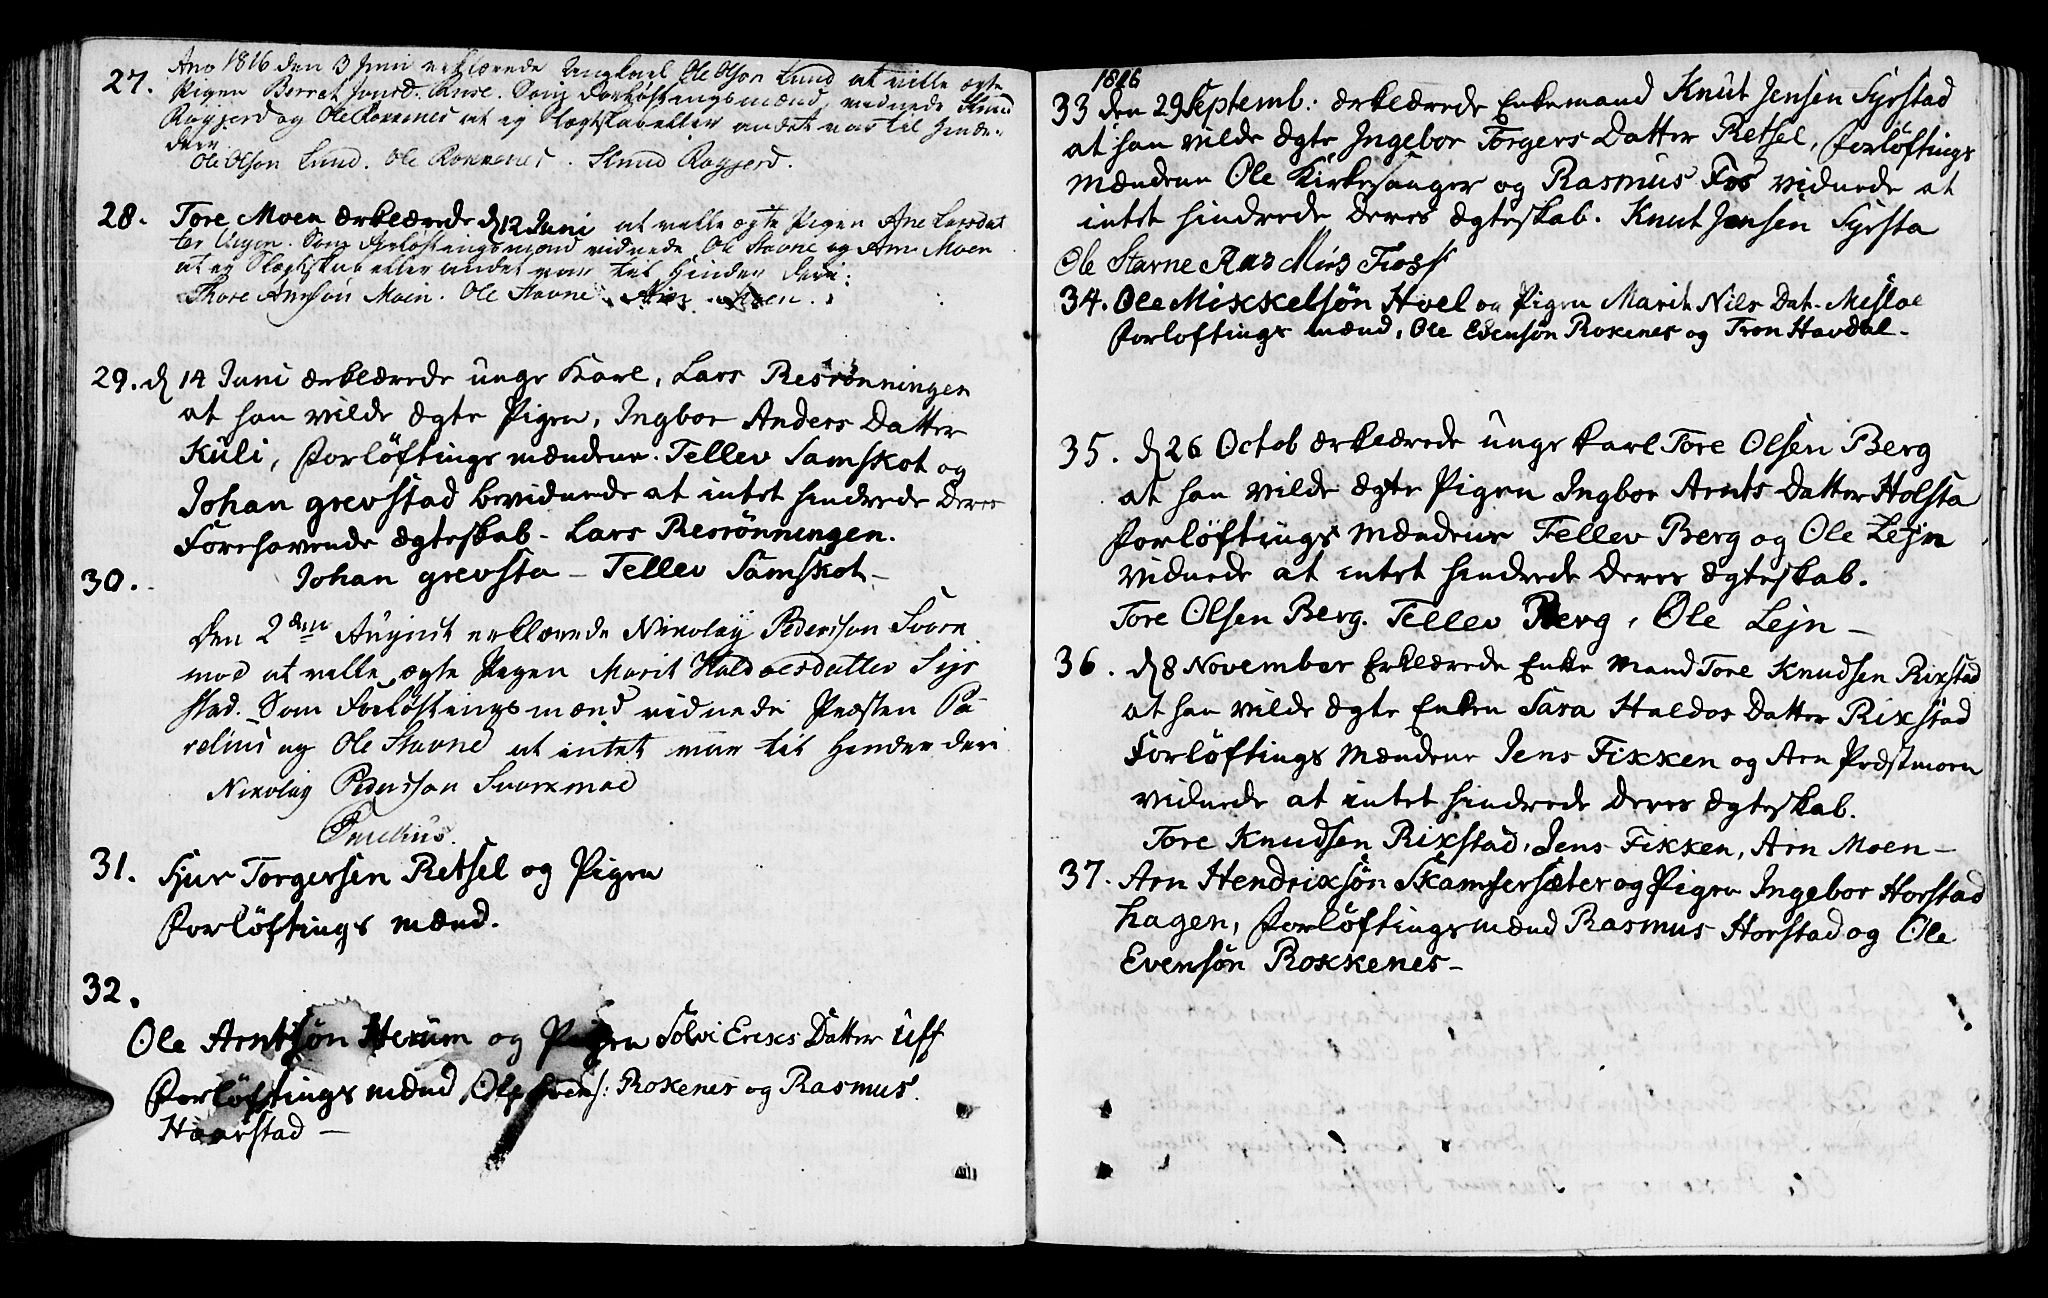 27. Ano 1816 den 3 Juni erklærede Ungkarl Ole Olson Lund at ville ægte
Pigen Berret Jonsd. Ruse. Som Forløftningsmænd, vidnede Knud
Rogjerd og Ole Rokkenes at ej Slægtskab eller andet var til Hinder
deri
Ole Olson Lund. Ole Rokkenes. Knud Rogjerd.
28. Tore Moen ærklærede d 12 Juni at ville ægte Pigen Ane Larsdat
ter Som Forløftningsmænd vidnede Ole Stavne og Arn Moen
at ej Slægtskab eller andet var til Hinder deri:
Thore Arnson Moen. Ole Stavne. Moen.
29. d 14 Juni ærklærede unge Karl, Lars Resrönningen
at han vilde ægte Pigen, Ingbor Anders Datter
Kúli, Forlöftings mændene. Tellev Samskot og
Johan grevstad bevidnede at intet hindrede Deres
Forehavende ægteskab - Lars Resrönningen.
Johan grevsta - Tellev Samskot -
30.
Den 2den August erklærede Nikolay Pederson Svork
moe at ville ægte Pigen Marit Haldorsdatter Syr
stad. Som Forløftningsmænd vidnede Præsten Pa-
relius og Ole Stavne at intet var til Hinder deri
Nikolay Pederson Svorkmoe
Parelius.
31. Sjur Torgersen Retsel og Pigen
Forlöftings mænd.
32.
Ole Arntsön Herum og Pigen Solvi Erixs Datter Uff
Forlöftings mænd Ole Evens: Rokenes og Rasmus
Haarstad -
1816
33 den 29 Septemb: ærklærede Enkemand Knut Jensen Syrstad
at han vilde ægte Ingebor Torgers Datter Retsel, Forlöftings
mændene Ole Kirkesanger og Rasmus Fos vidnede at
intet hindrede Deres ægteskab. Knut Jensen Syrsta
Ole Stavne Rasmus Foss
34. Ole Mikkelsön Hoel og Pigen Marit Nils Dat. Mesloe
Forloftings mænd, Ole Evensøn Rokenes og Tron Havdal -
35. d 26 Octob ærklærede unge karl Tore Olsen Berg
at han vilde ægte Pigen Ingbor Arnts Datter Holsta
Forlöftings mændene Tellev Berg og Ole Lejn
vidnede at intet hindrede Deres ægteskab.
Tore Olsen Berg. Tellev Berg, Ole Lejn -
36. d 8 November Erklærede Enke mand Tore Knudsen Rixstad
at han vilde ægte Enken Sara Haldos Datter Rixstad
Forlöftings mændene Jens Fikken og Arn Præstmoen
vidnede at intet hindrede Deres ægteskab.
Tore Knudsen Rixstad, Jens Fikken, Arn Moen -
37. Arn Hendrixsön Skamfersæter og Pigen Ingebor Horstad
hagen, Forlöftingsmænd Rasmus Horstad og Ole
Evensön Rokkenes -